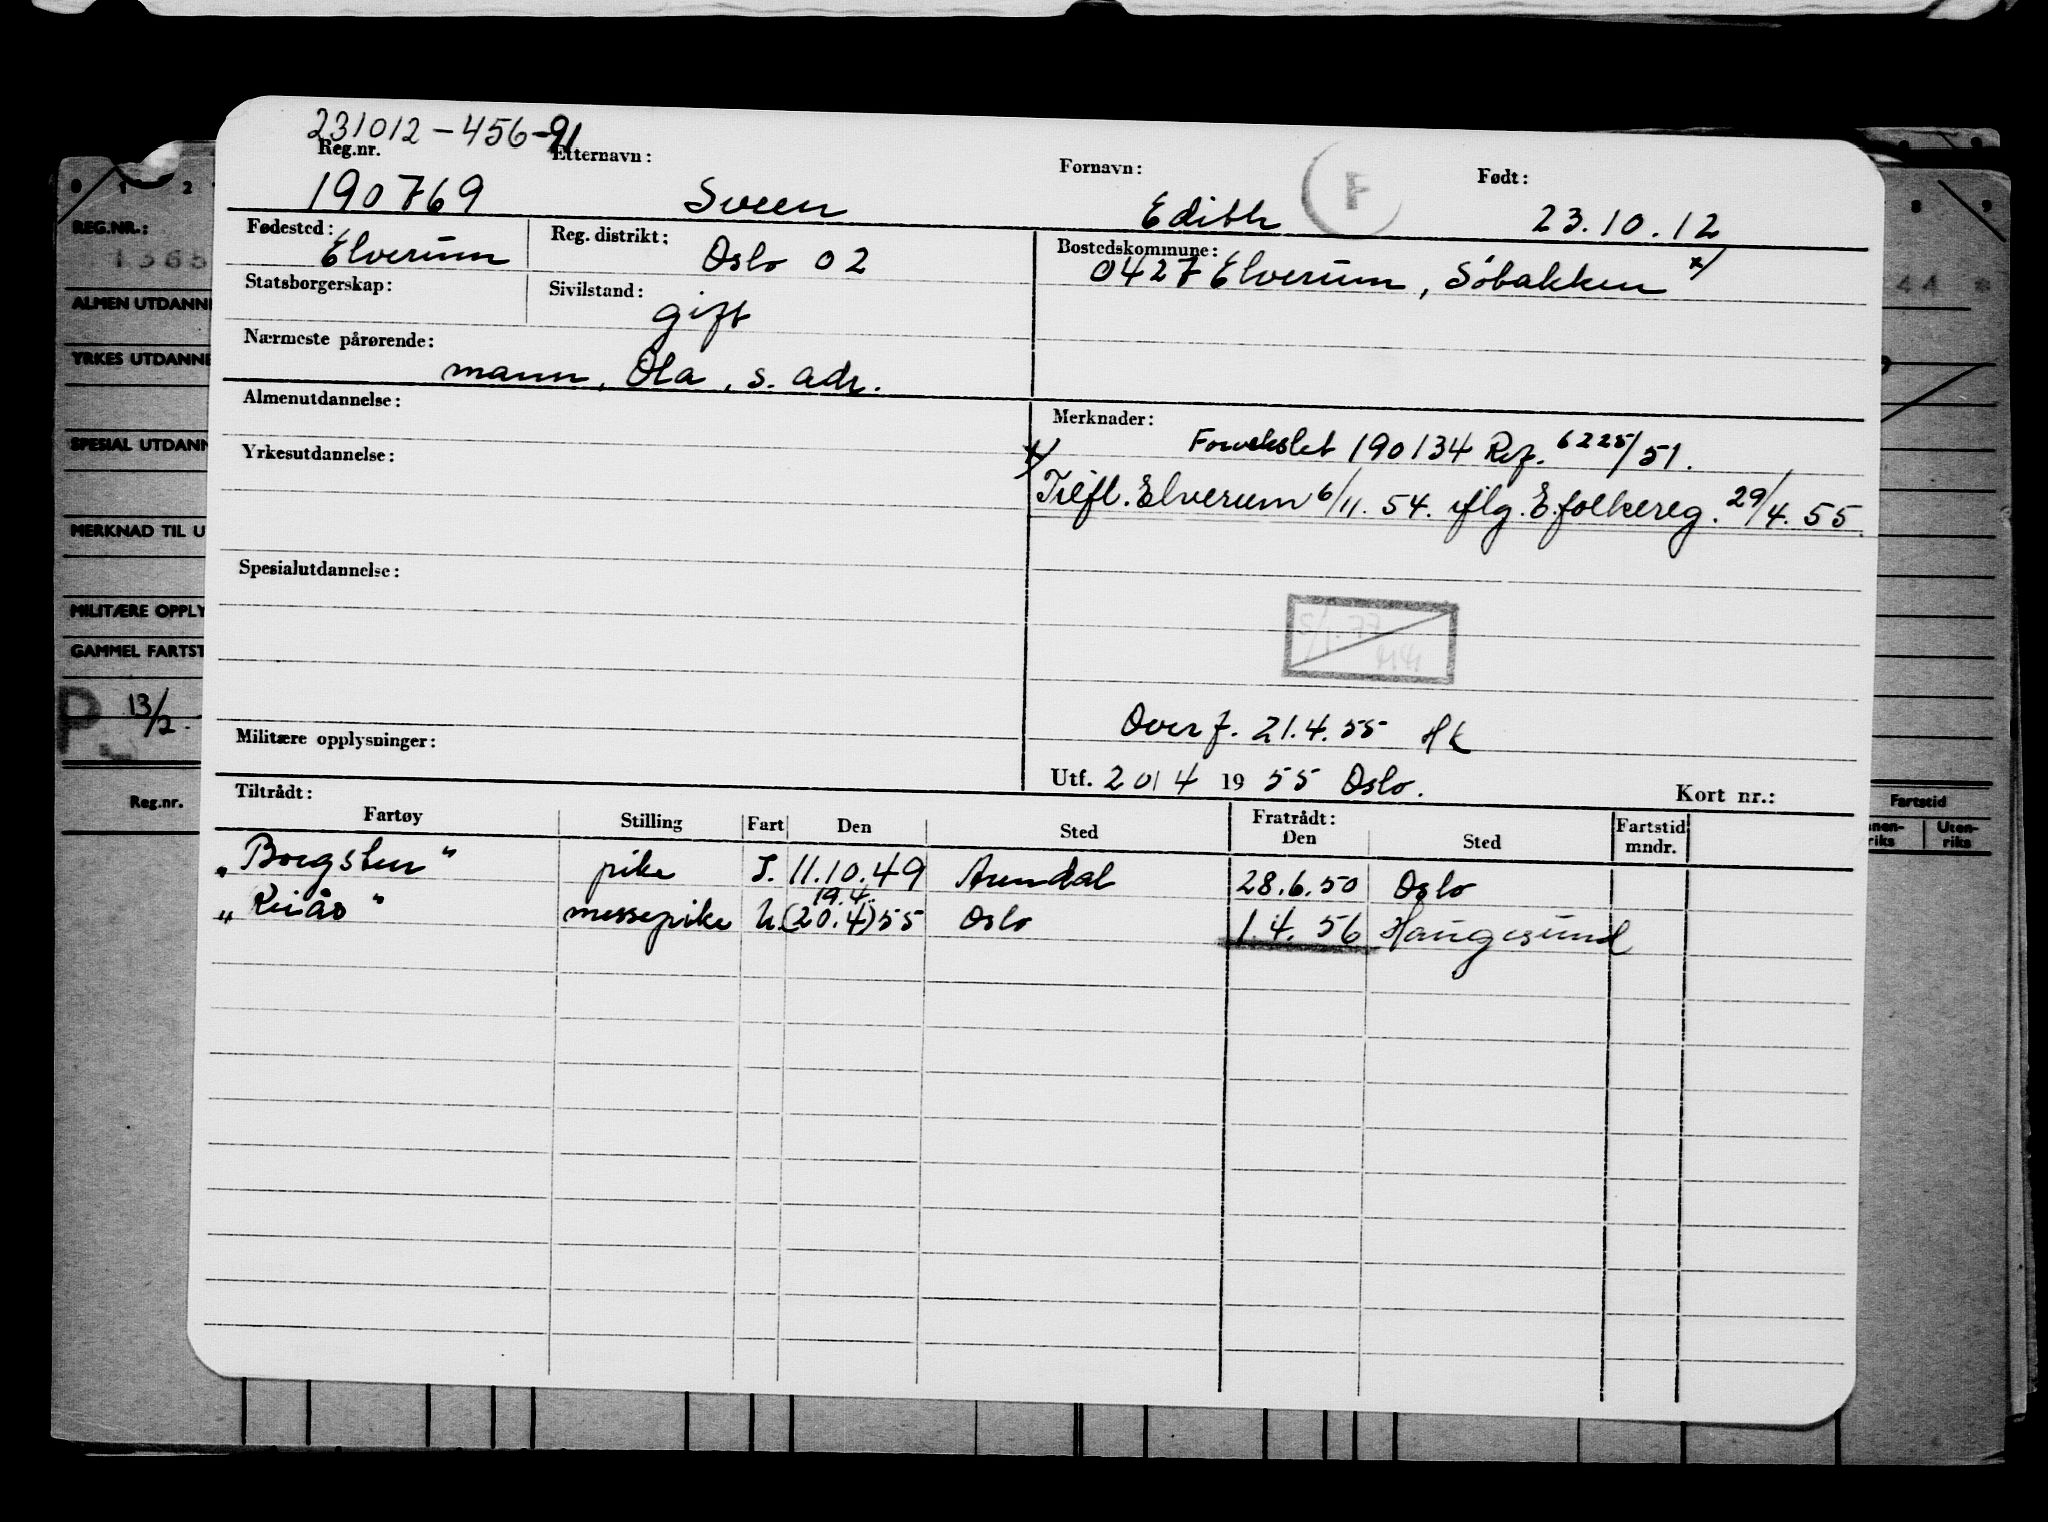 231012-456-91
Reg.nr. Etternavn: Fornavn: Født:
190769 Sveen Edith F 23.10.12
Fødested: Elverum Reg. distrikt: Oslo 02 Bostedskommune: 0427 Elverum, Söbakken x/
Statsborgerskap: Sivilstand: gift
Nærmeste pårørende: mann, Ola, s. adr.
Almenutdannelse: Merknader:
Forvekslet 190134 Ref. 6225/51.
Yrkesutdannelse:
x/ Tilfl. Elverum 6/11. 54. iflg. E.folkereg. 29/4. 55.
Spesialutdannelse:
5/1. 77
Overf. 21.4.55 HK
Militære opplysninger:
Utf. 20/4 1955 Oslo. Kort nr.:
Tiltrådt: Fratrådt:
Fartøy Stilling Fart Den Sted Den Sted Fartstid mndr.
"Borgsten" pike I. 11.10.49 Arendal 28.6.50 Oslo
19.4.
"Reiås" messepike U. (20.4) 55 Oslo 1.4. 56 Haugesund
1 2
REG.NR.:
ALMEN UTDANNE
YRKES UTDANNE
SPESIAL UTDANN
MERKNAD TIL U
MILITÆRE OPPLY
GAMMEL FARTST
P 13/2.
Reg.nr.
8 9
44
Fartstid
nen-riks Uten-riks